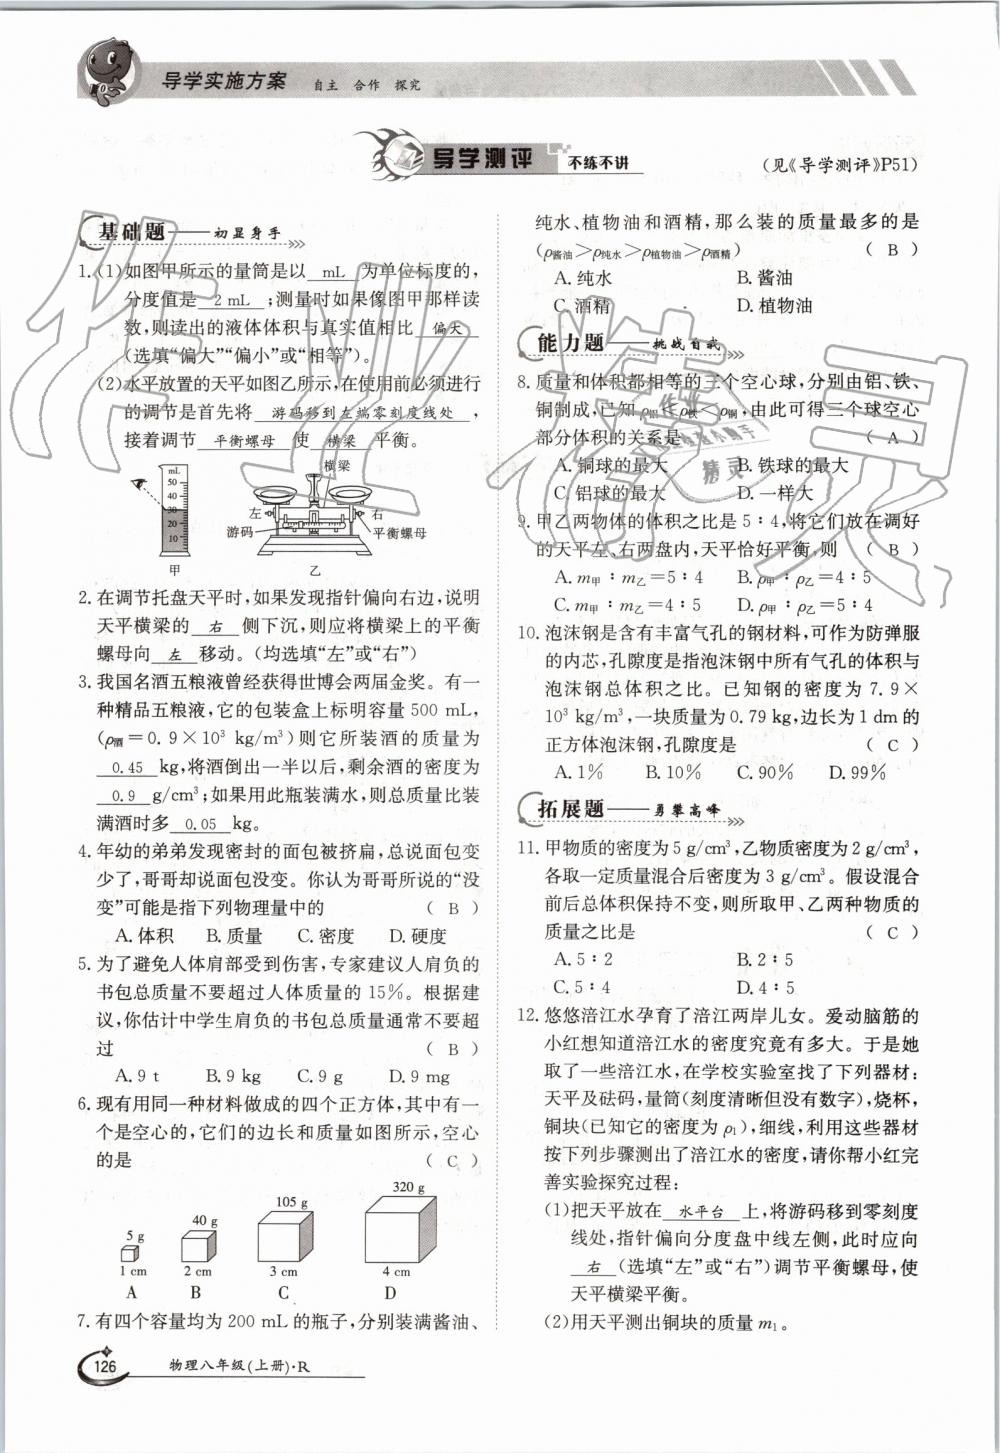 导学实施方案 自主 合作 探究
导学测评 不练不讲
(见《导学测评》P51)
基础题——初显身手
1. (1)如图甲所示的量筒是以 mL 为单位标度的，
分度值是 2 mL ;测量时如果像图甲那样读
数,则读出的液体体积与真实值相比 偏大
(选填“偏大”“偏小”或“相等”)。
(2)水平放置的天平如图乙所示,在使用前必须进行
的调节是首先将 游码移到左端零刻度线处 ,
接着调节 平衡螺母 使 横梁 平衡。
mL
50
40
30
20
10
甲
横梁
左
右
游码
平衡螺母
乙
2. 在调节托盘天平时,如果发现指针偏向右边,说明
天平横梁的 右 侧下沉,则应将横梁上的平衡
螺母向 左 移动。(均选填“左”或“右”)
3. 我国名酒五粮液曾经获得世博会两届金奖。有一
种精品五粮液,它的包装盒上标明容量 500 mL,
(ρ酒=0.9×10³ kg/m³)则它所装酒的质量为
0.45 kg,将酒倒出一半以后,剩余酒的密度为
0.9 g/cm³;如果用此瓶装满水,则总质量比装
满酒时多 0.05 kg。
4. 年幼的弟弟发现密封的面包被挤扁,总说面包变
少了,哥哥却说面包没变。你认为哥哥所说的“没
变”可能是指下列物理量中的 ( B )
A. 体积 B. 质量 C. 密度 D. 硬度
5. 为了避免人体肩部受到伤害,专家建议人肩负的
书包总质量不要超过人体质量的 15%。根据建
议,你估计中学生肩负的书包总质量通常不要超
过 ( B )
A. 9 t B. 9 kg C. 9 g D. 9 mg
6. 现有用同一种材料做成的四个正方体,其中有一
个是空心的,它们的边长和质量如图所示,空心
的是 ( C )
5 g 40 g 105 g 320 g
1 cm 2 cm 3 cm 4 cm
A B C D
7. 有四个容量均为 200 mL 的瓶子,分别装满酱油、
126 物理八年级(上册)·R
纯水、植物油和酒精,那么装的质量最多的是
(ρ酱油>ρ纯水>ρ植物油>ρ酒精) ( B )
A. 纯水 B. 酱油
C. 酒精 D. 植物油
能力题——挑战自我
8. 质量和体积都相等的三个空心球,分别由铝、铁、
铜制成,已知 ρ铝<ρ铁<ρ铜,由此可得三个球空心
部分体积的关系是 ( A )
A. 铜球的最大 B. 铁球的最大
C. 铝球的最大 D. 一样大
9. 甲乙两物体的体积之比是 5∶4,将它们放在调好
的天平左、右两盘内,天平恰好平衡,则 ( B )
A. m甲∶m乙=5∶4 B. ρ甲∶ρ乙=4∶5
C. m甲∶m乙=4∶5 D. ρ甲∶ρ乙=5∶4
10. 泡沫钢是含有丰富气孔的钢材料,可作为防弹服
的内芯,孔隙度是指泡沫钢中所有气孔的体积与
泡沫钢总体积之比。已知钢的密度为 7.9×
10³ kg/m³,一块质量为 0.79 kg,边长为 1 dm 的
正方体泡沫钢,孔隙度是 ( C )
A. 1% B. 10% C. 90% D. 99%
拓展题——勇攀高峰
11. 甲物质的密度为 5 g/cm³,乙物质密度为 2 g/cm³,
各取一定质量混合后密度为 3 g/cm³。假设混合
前后总体积保持不变,则所取甲、乙两种物质的
质量之比是 ( C )
A. 5∶2 B. 2∶5
C. 5∶4 D. 4∶5
12. 悠悠涪江水孕育了涪江两岸儿女。爱动脑筋的
小红想知道涪江水的密度究竟有多大。于是她
取了一些涪江水,在学校实验室找了下列器材:
天平及砝码,量筒(刻度清晰但没有数字),烧杯,
铜块(已知它的密度为 ρ₁),细线,利用这些器材
按下列步骤测出了涪江水的密度,请你帮小红完
善实验探究过程:
(1)把天平放在 水平台 上,将游码移到零刻度
线处,指针偏向分度盘中线左侧,此时应向
右 (选填“左”或“右”)调节平衡螺母,使
天平横梁平衡。
(2)用天平测出铜块的质量 m₁。
作业精灵